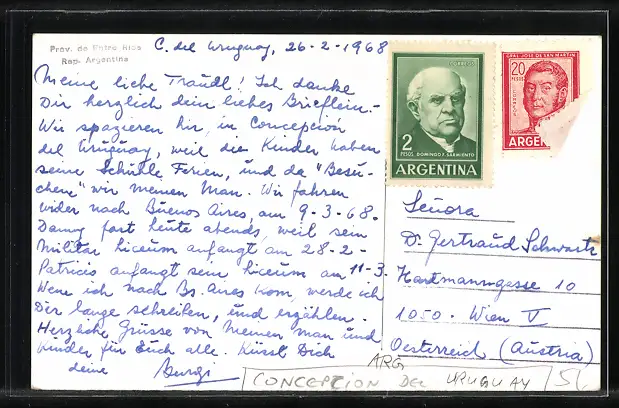 Prov. de Entre Rios
Rep. Argentina
C. del Uruguay, 26-2-1968
Meine liebe Traudl! Ich danke
Dir herzlich dein liebes Brieflein.-
Wir spazieren hir, in Concepción
del Uruguay, weil die Kinder haben
seine Schulle Ferien, und da "Besu-
chen" wir meinen Man. Wir fahren
wider nach Buenos Aires, am 9-3-68.
Danny fart heute abends, weil sein
Militär Liceum anfangt am 28-2-
Patricio anfangt sein Liceum am 11-3.
Wenn ich nach Bs. Aires kom, werde ich
Der lange schreiben, und erzählen.
Herzliche Grüsse von meinen man und
Kinder für Euch alle. Küsst Dich
deine Burgi
CORREOS
2
PESOS DOMINGO F. SARMIENTO
ARGENTINA
GRAL JOSE DE SAN MARTIN
20
PESOS
ARGEN
Señora
Dr. Gertraud Schwartz
Hartmanngasse 10
1050. Wien V
Oesterreich (Austria)
ARG
CONCEPTION DEL URUGUAY